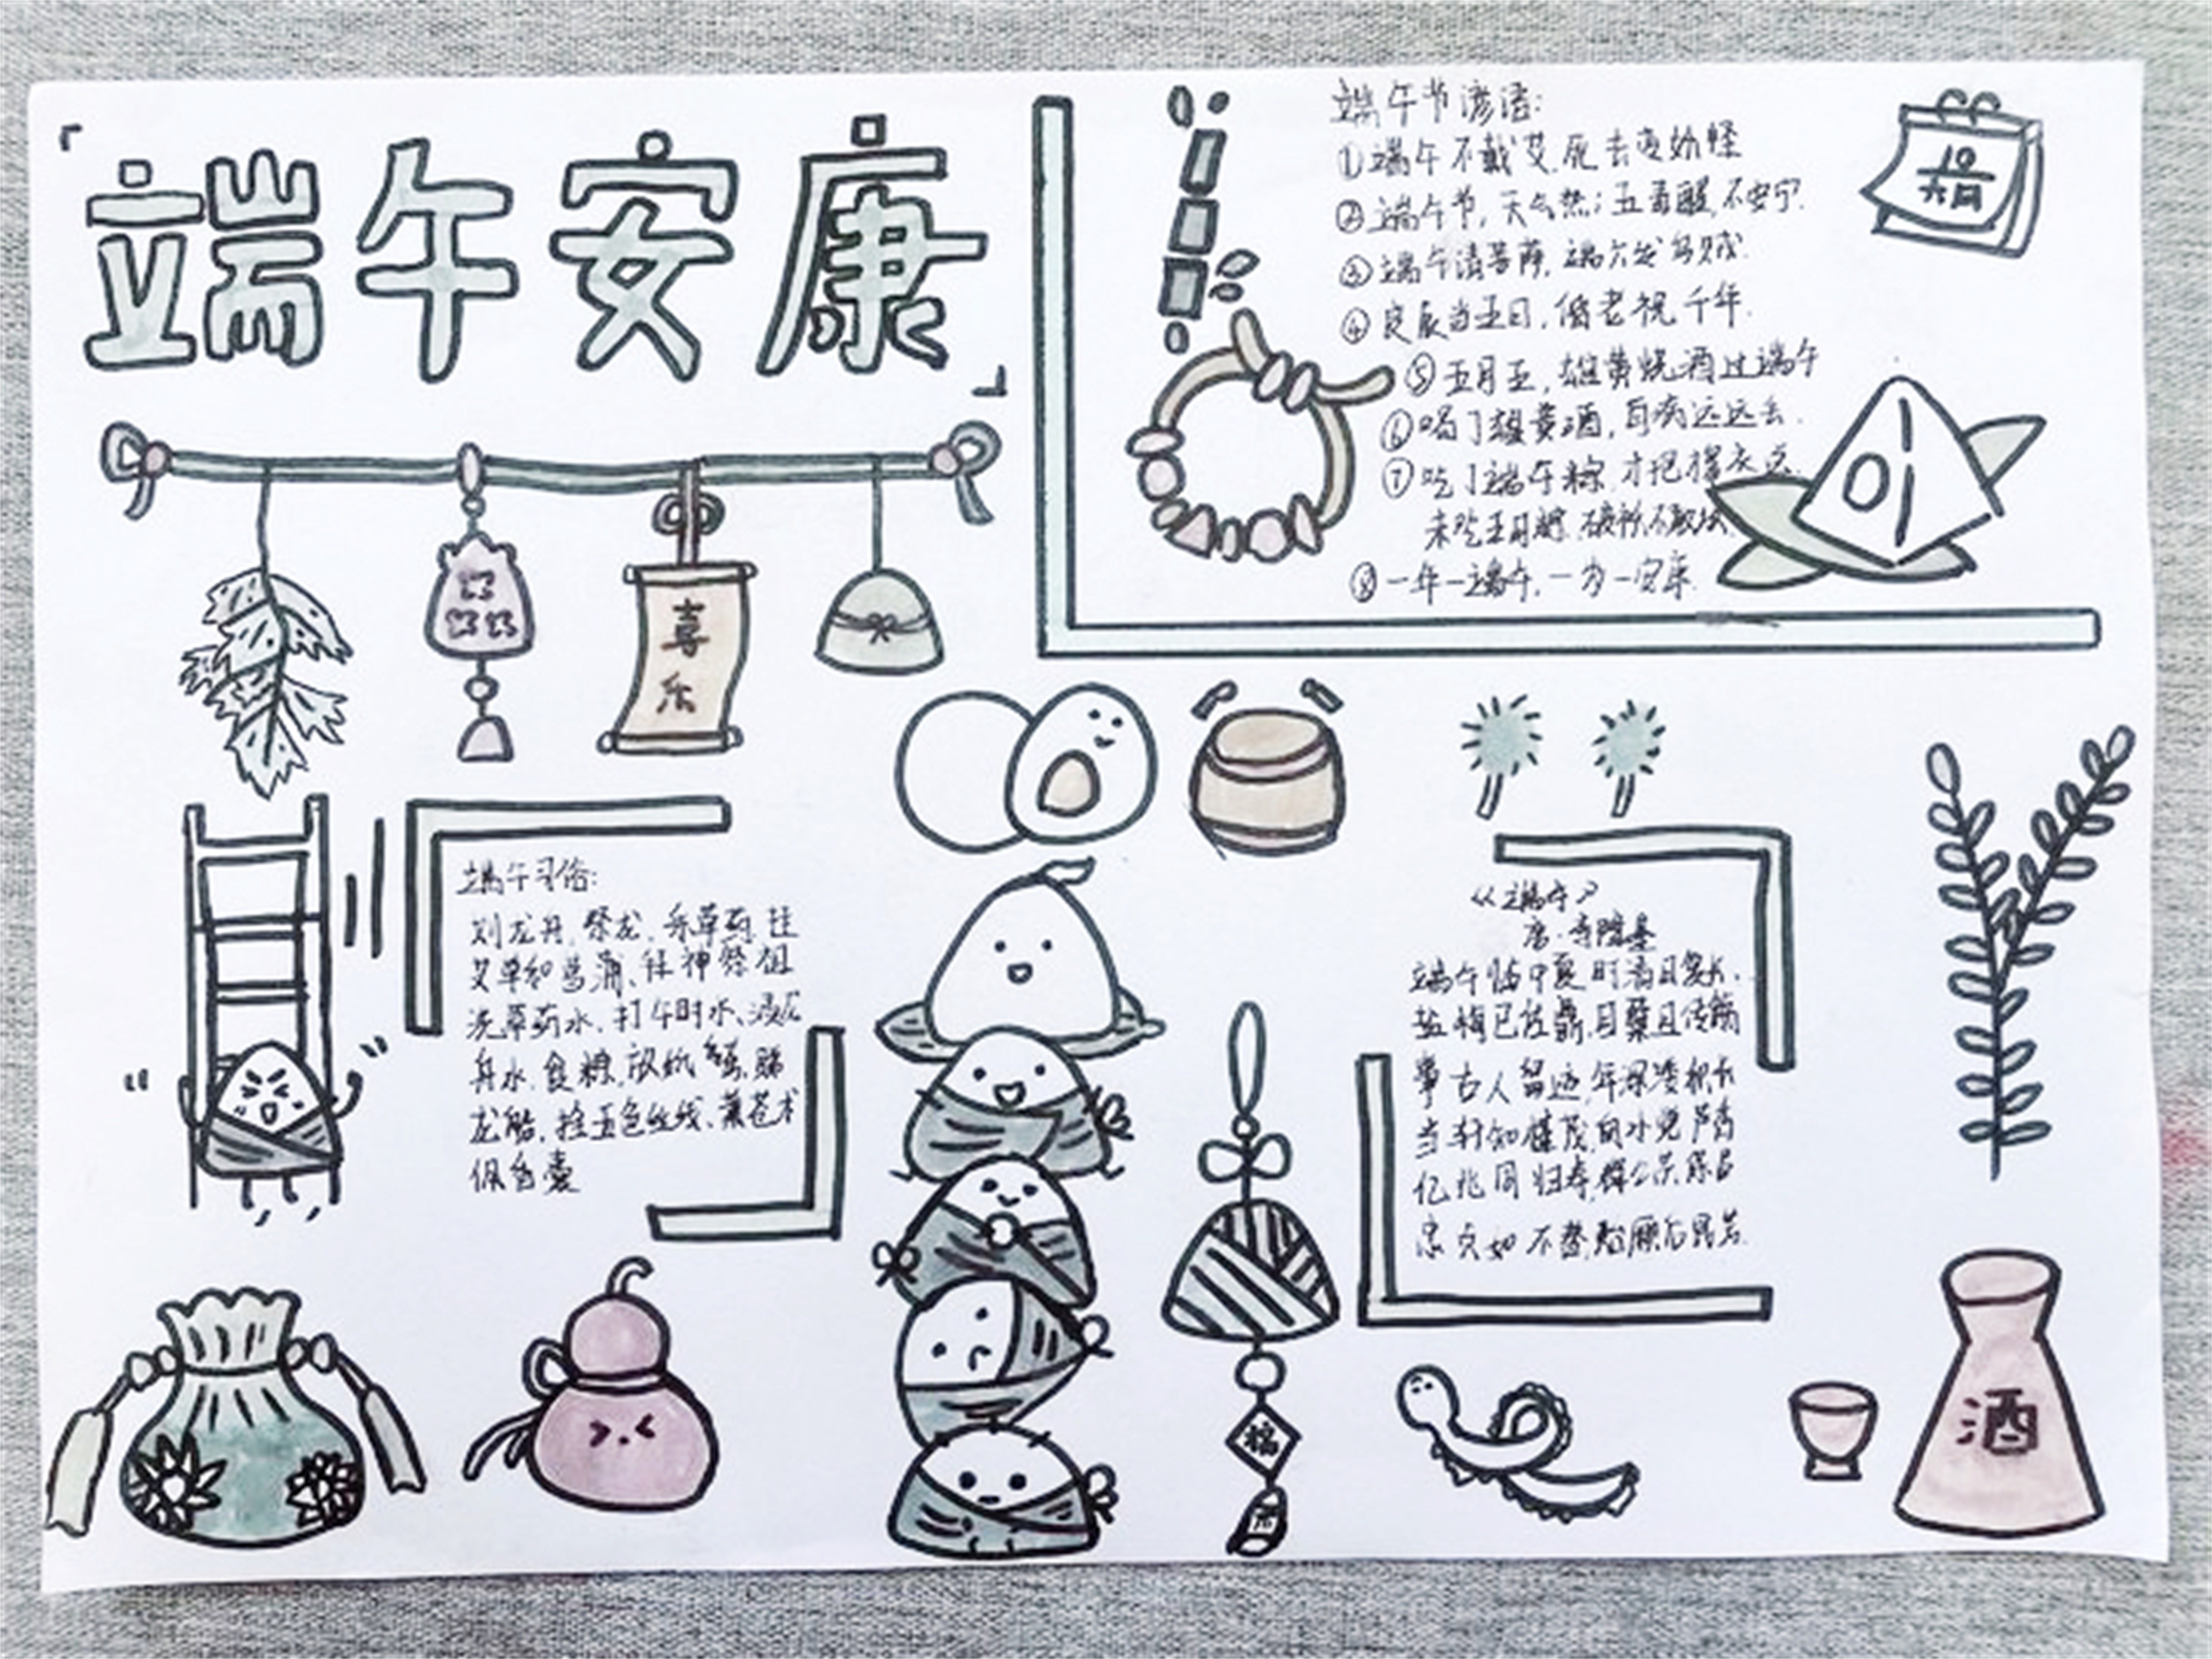 端午安康
喜
乐
端午节谚语:
①端午不戴艾,死去变妖怪
②端午节,天气热;五毒醒,不安宁.
③端午请菩萨,端六发乌贼.
④良辰当五日,偕老祝千年.
⑤五月五,雄黄烧酒过端午
⑥喝了雄黄酒,百病远远丢.
⑦吃了端午粽,才把棉衣送.
未吃五月粽,破袄不敢
⑧一年一端午,一岁一安康.
10
六月
端午习俗:
划龙舟、祭龙、采草药、挂
艾草和菖蒲、拜神祭祖
洗草药水、打午时水、浸龙
舟水、食粽、放纸鸢、睇
龙船、拴五色丝线、薰苍术
佩香囊
《端午》
唐·李隆基
端午临中夏,时清日复长.
盐梅已佐鼎,曲糵且传觞
事古人留迹,年深缕积长
当轩知槿茂,向水觉芦香
亿兆同归寿,群公共保昌
忠贞如不替,贻厥后昆芳.
福
酒